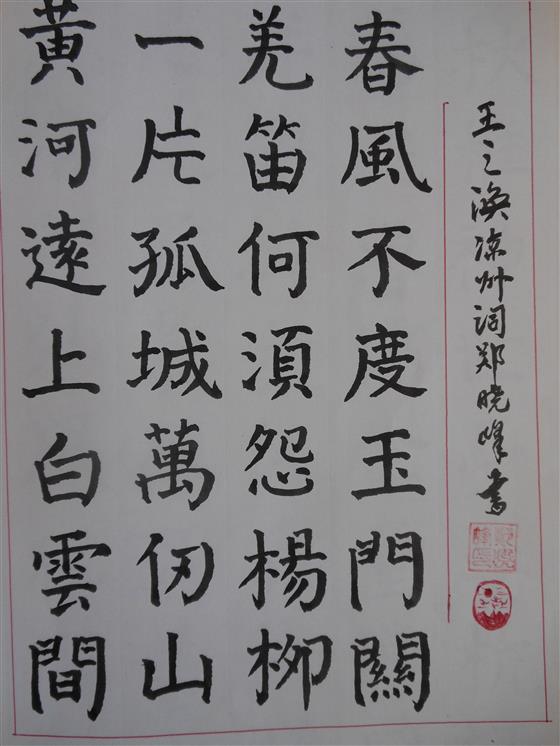 黄河遠上白雲間
一片孤城萬仞山
羌笛何湏怨楊柳
春風不度玉門闗
王之涣凉州词郑晓峰書